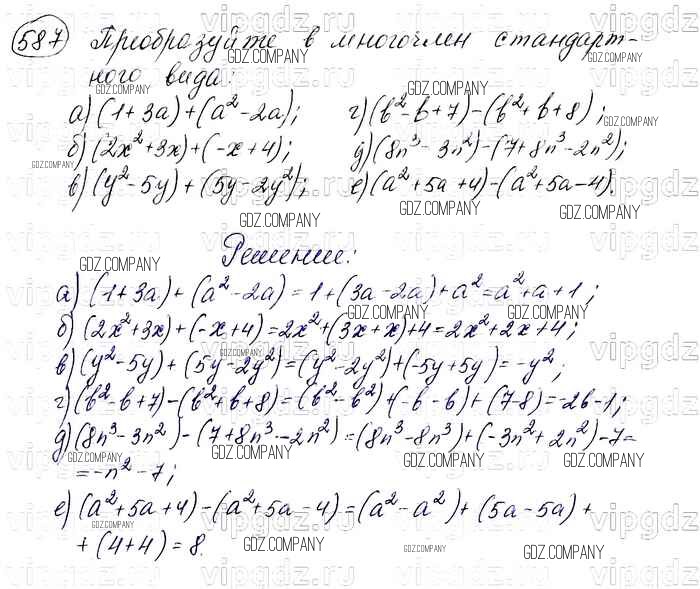 587 Преобразуйте в многочлен стандарт-
ного вида:
а) (1+3a)+(a²-2a); г) (b²-b+7)-(b²+b+8);
б) (2x²+3x)+(-x+4); д) (8n³-3n²)-(7+8n³-2n²);
в) (y²-5y)+(5y-2y²); е) (a²+5a+4)-(a²+5a-4).
Решение:
а) (1+3a)+(a²-2a)=1+(3a-2a)+a²=a²+a+1;
б) (2x²+3x)+(-x+4)=2x²+(3x+x)+4=2x²+2x+4;
в) (y²-5y)+(5y-2y²)=(y²-2y²)+(-5y+5y)=-y²;
г) (b²-b+7)-(b²+b+8)=(b²-b²)+(-b-b)+(7-8)=-2b-1;
д) (8n³-3n²)-(7+8n³-2n²)=(8n³-8n³)+(-3n²+2n²)-7=
=-n²-7;
е) (a²+5a+4)-(a²+5a-4)=(a²-a²)+(5a-5a)+
+(4+4)=8.